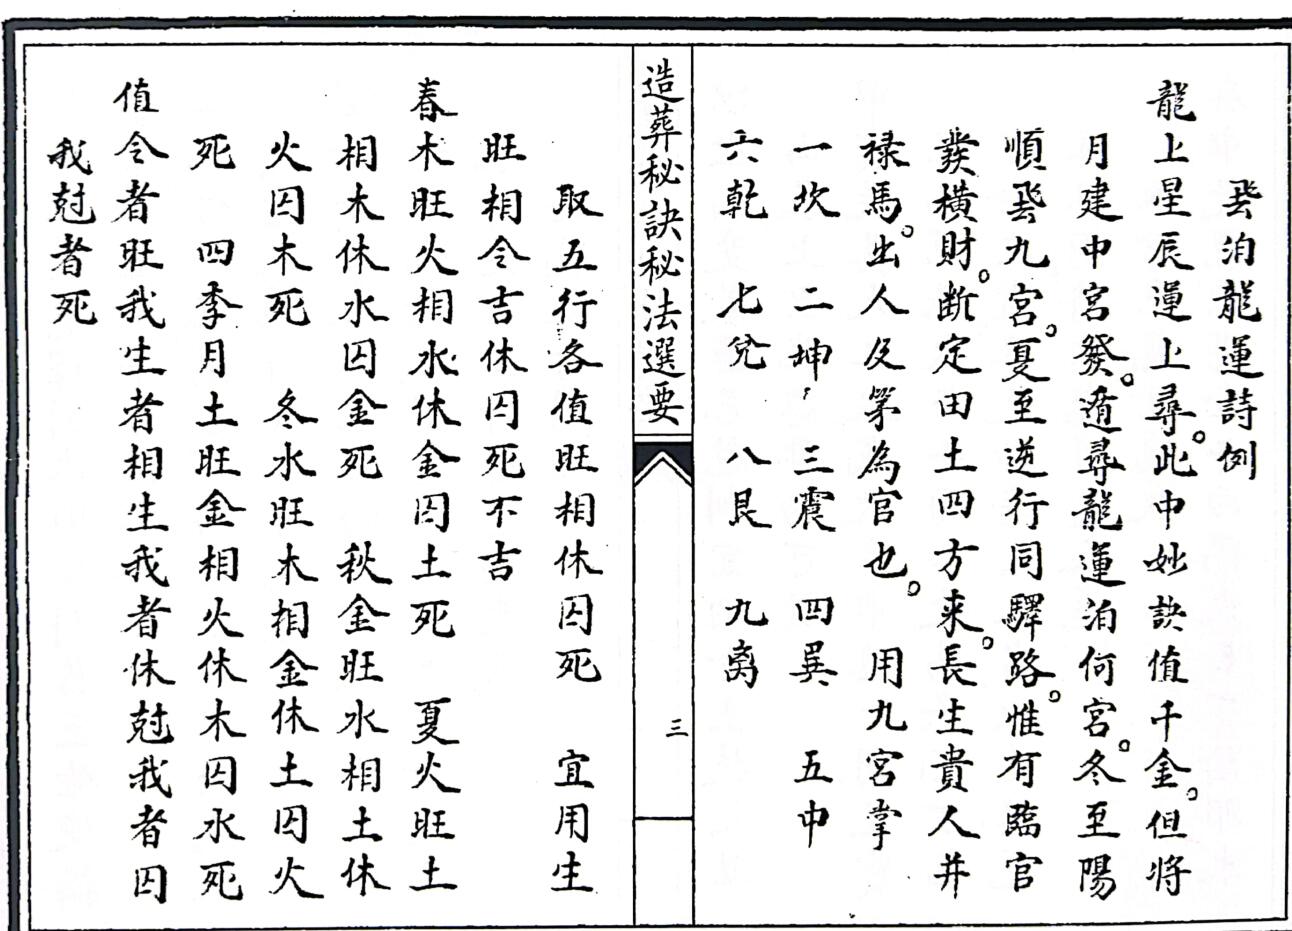 飛泊龍運詩例
龍上星辰運上尋。此中妙訣值千金。但將
月建中宮發。遁尋龍運泊何宮。冬至陽
順飛九宮。夏至逆行同驛路。惟有臨官
橫財。断定田土四方来。長生貴人并
禄馬。出人及第為官也。 用九宮掌
一坎 二坤 三震 四巽 五中
六乾 七兌 八艮 九离
造葬秘訣秘法選要
三
取五行各值旺相休囚死 宜用生
旺相令吉休囚死不吉
春木旺火相水休金囚土死 夏火旺土
相木休水囚金死 秋金旺水相土休
火囚木死 冬水旺木相金休土囚火
死 四季月土旺金相火休木囚水死
值令者旺我生者相生我者休尅我者囚
我尅者死